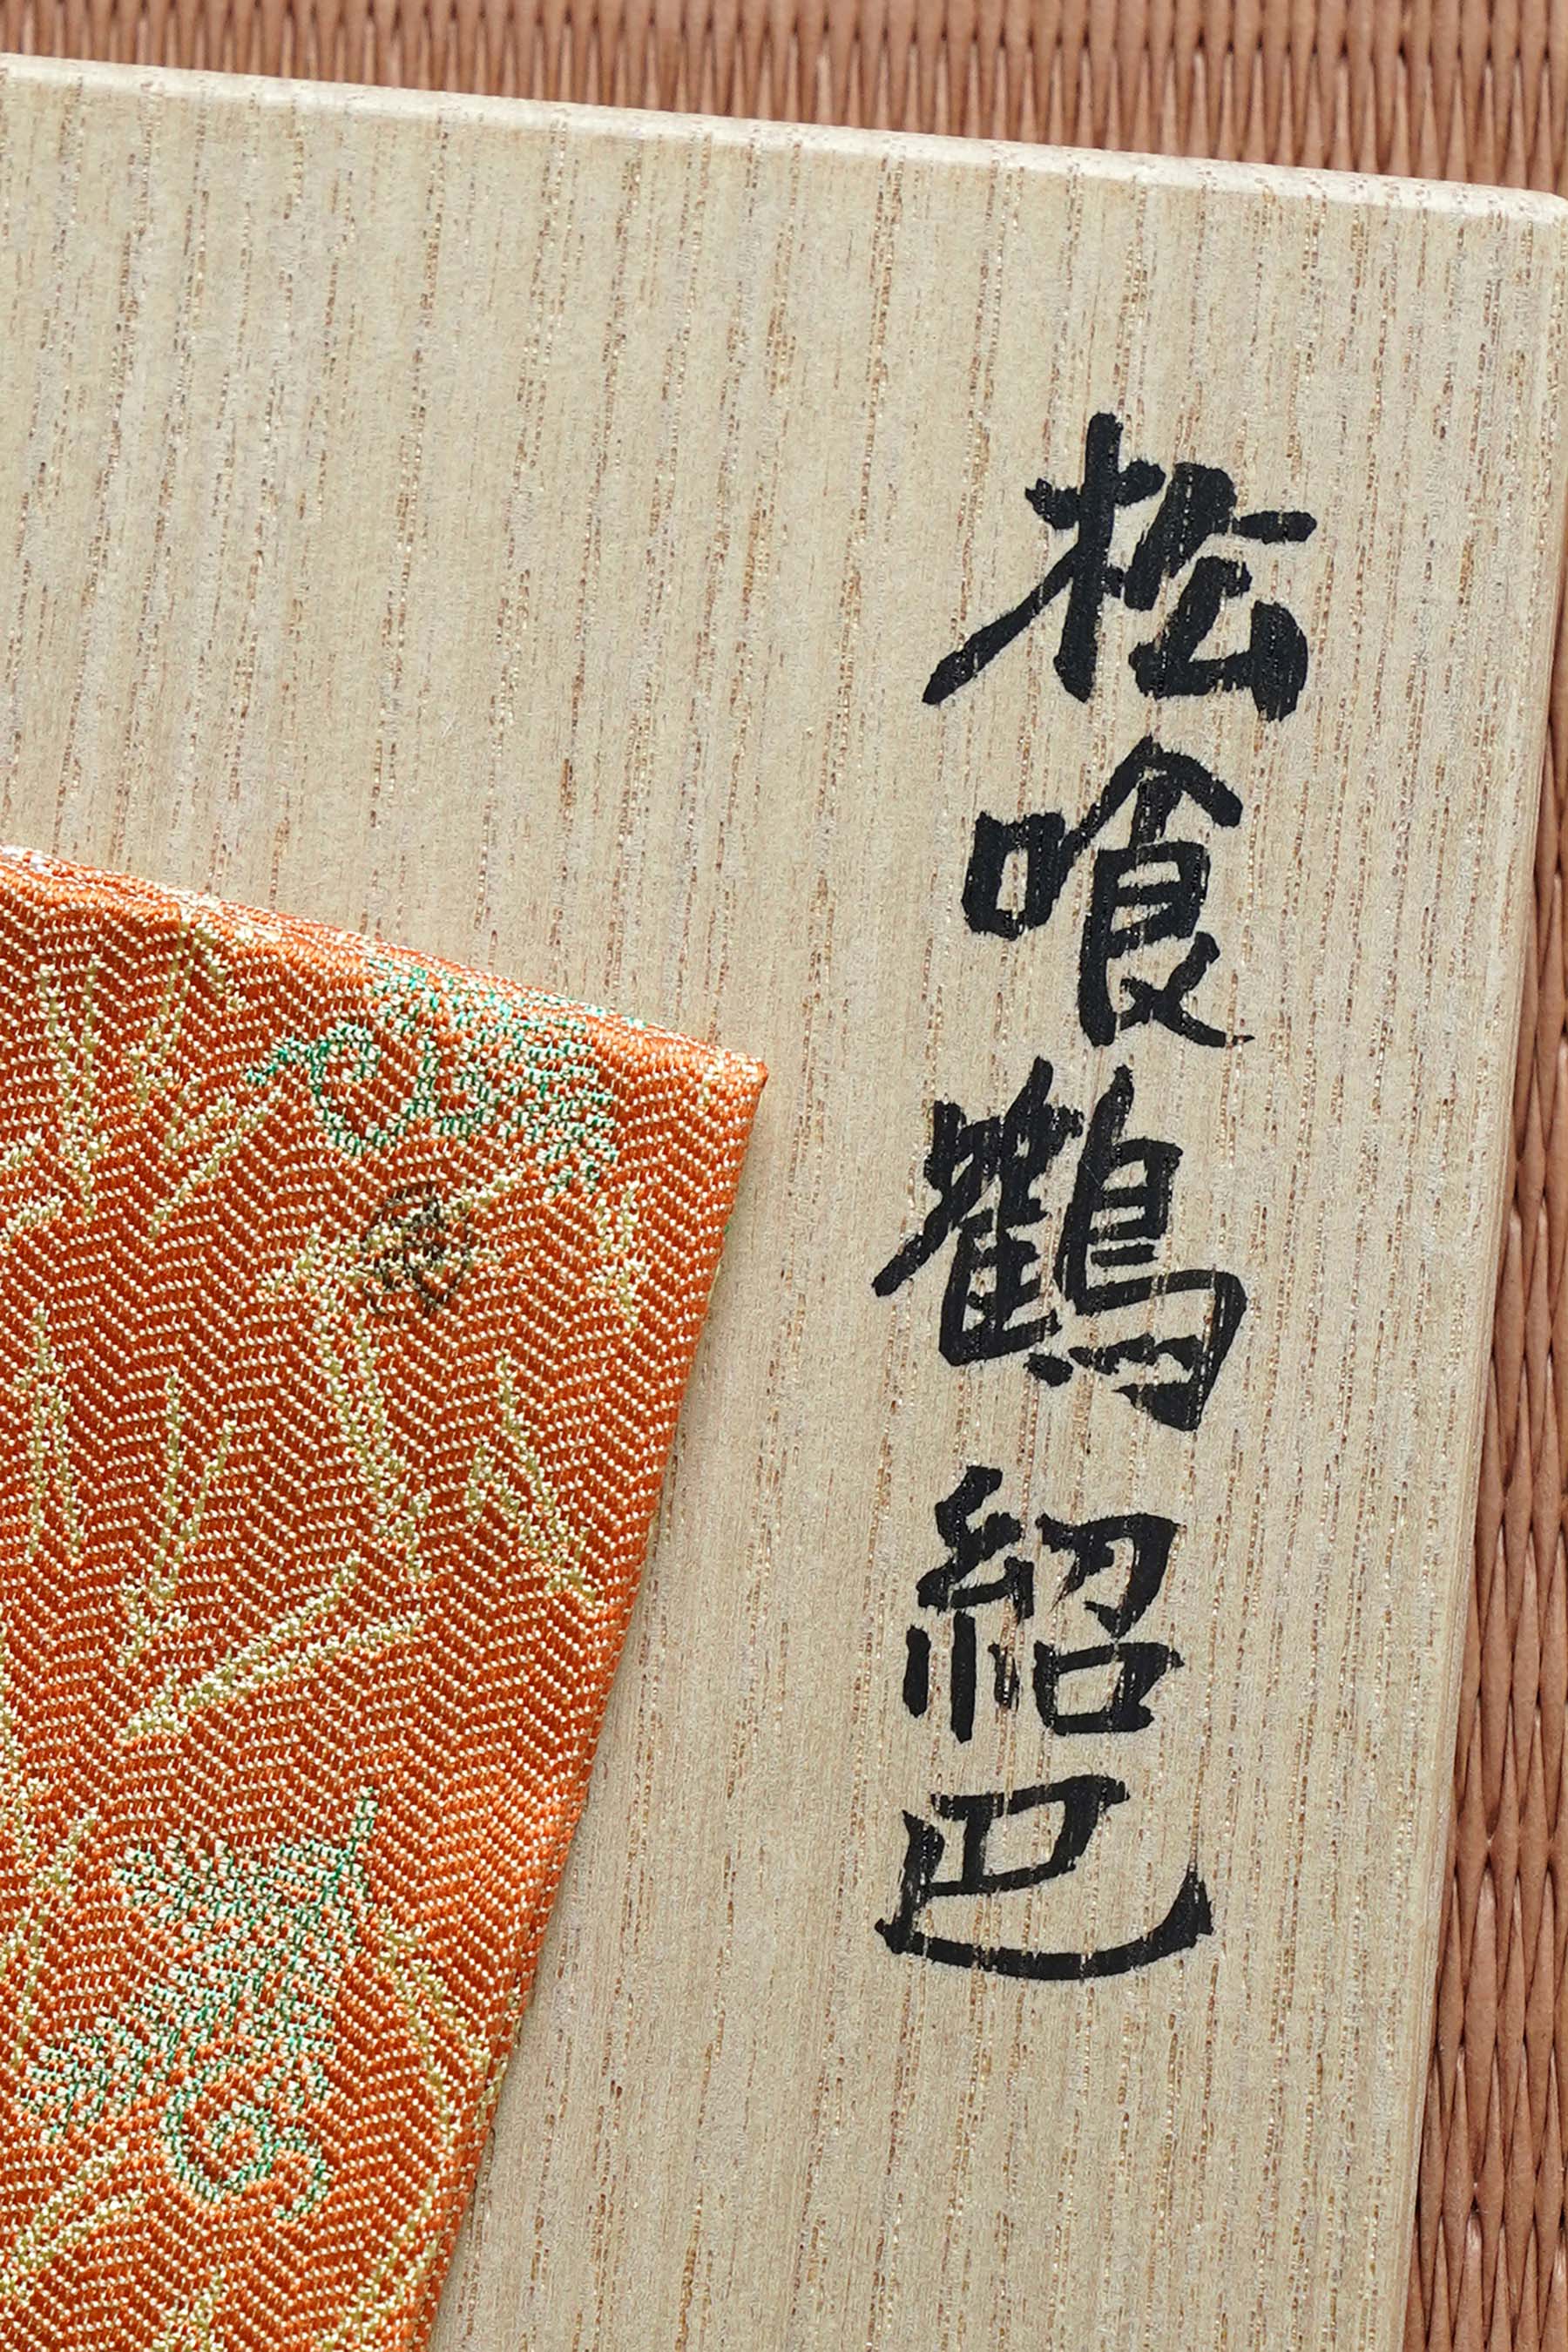 松喰鶴紹巴